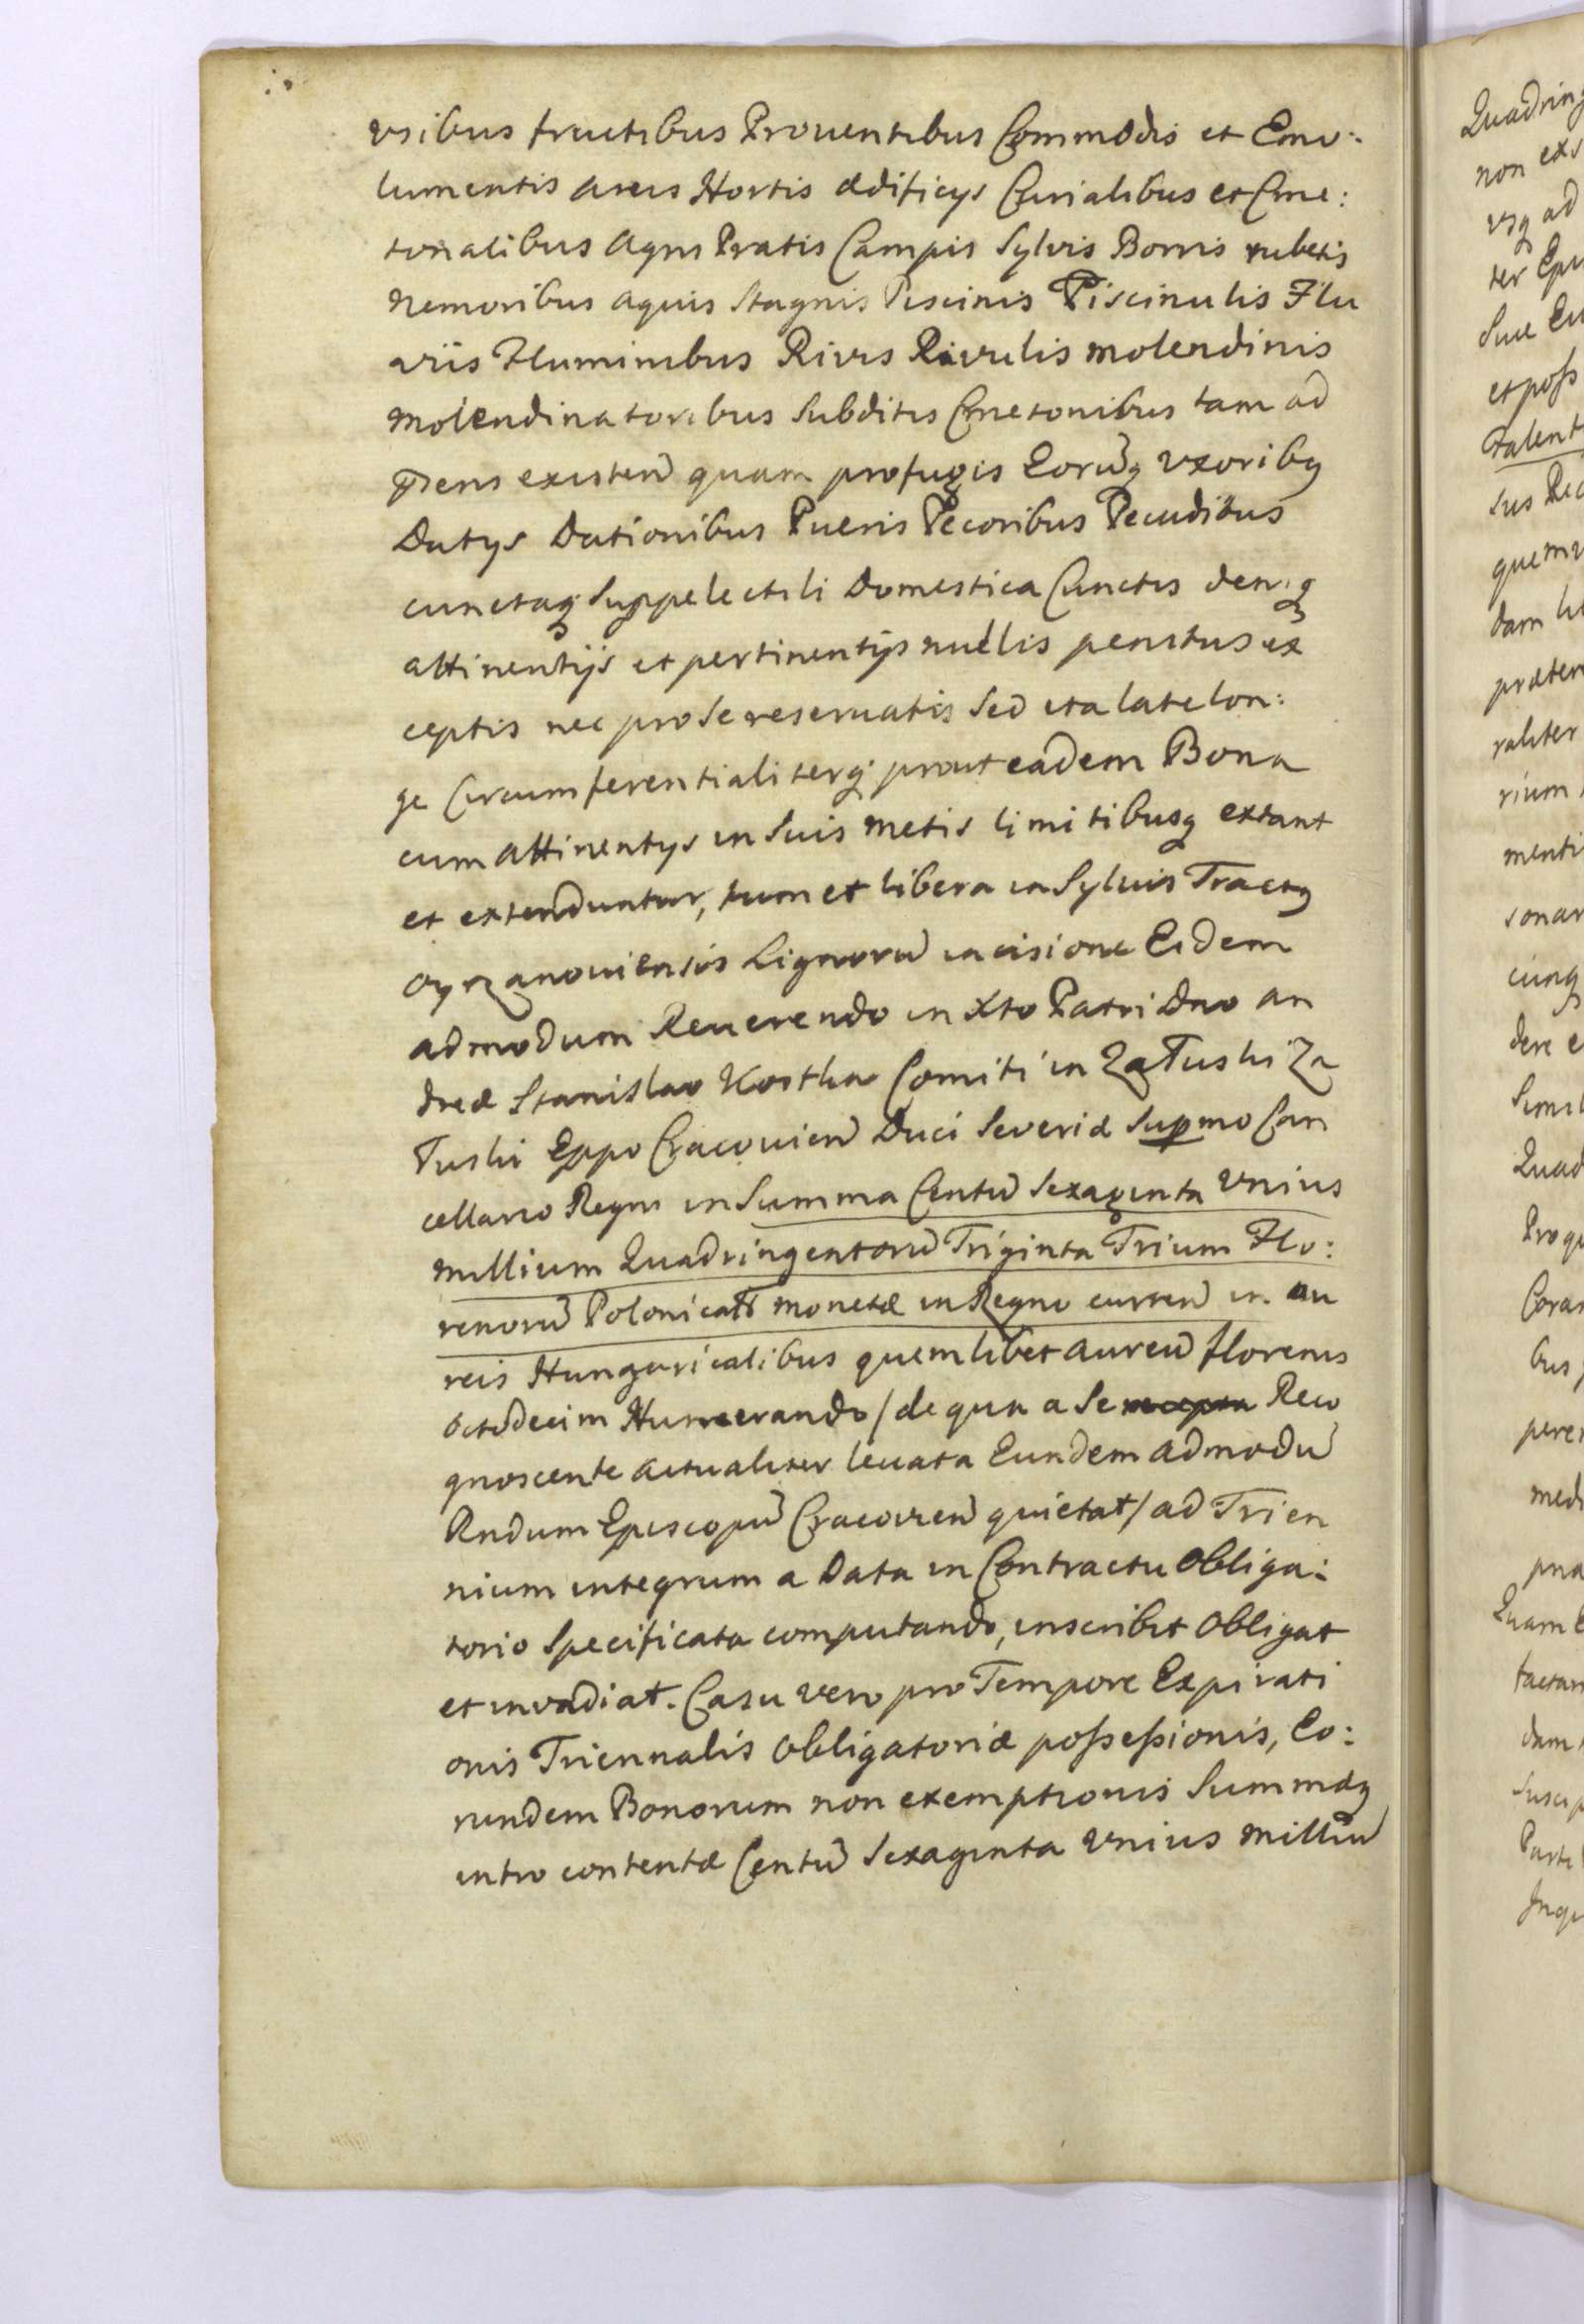 usibus fructibus Prouentibus Commodis et Emo:
lumentis areis Hortis ædificys Curialibus et Cme:
tonalibus Agris Pratis Campis Sylvis Borris rubetis
Nemoribus aquis Stagnis Piscinis Piscinulis Flu
viis Fluminibus Rivis Rivulis molendinis
molendinatoribus Subditis Cmetonibus tam ad
præns existen quam profugis Eorūq uxoribq
Datys Dationibus Pueris Pecoribus Pecudibus
cunctaq Suppelectili Domestica Cunctis deniq
attinentijs et pertinentijs nullis penitus ex
ceptis nec pro se reseruatis Sed ita late lon:
ge Circumferentialiterq prout eadem Bona
cum attinentys in Suis metis limitibusq extant
et extenduntur, tum et libera in Syluis Tractq
Lignorū incisione Eidem
admodum Reuerendo in Xto Patri Dno An
dreæ Stanislao Kostka Comiti in Załuski Za
łuski Eppo Cracovien Duci Severiæ Supmo Can
cellario Regni in Summa Centū Sexaginta Unius
millium Quadringentorū Triginta Trium Flo:
renorū Polonicalī monetæ in Regno curren in au
reis Hungaricalibus quemlibet aureū florenis
octodecim Numerando / de qua a Se Reco
gnoscente actualiter leuata Eundem admodū
Rndum Episcopū Cracovien quietat / ad Trien
nium integrum a Data in Contractu Obliga:
torio Specificata computando, inscribit Obligat
et invadiat. Casu vero pro Tempore Expirati
onis Triennalis Obligatoriæ possessionis, Eo:
rundem Bonorum non exemptionis Summæq
intro contentæ Centū Sexaginta Unius milliū